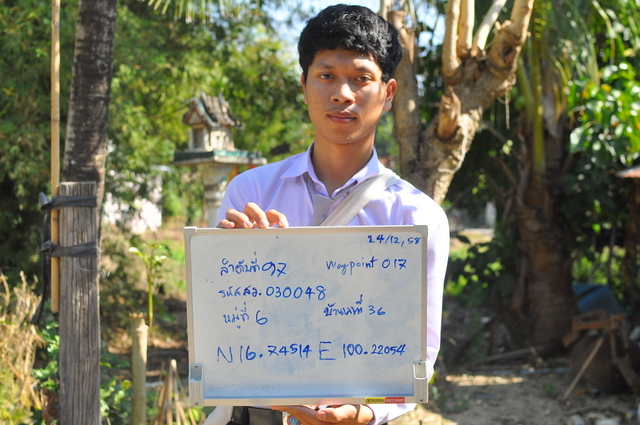 24/12,58
ลำดับที่ 97 waypoint 017
รหัสสว. 030048
หมู่ที่ 6 บ้านเลขที่ 36
N 16.74514 E 100.22054